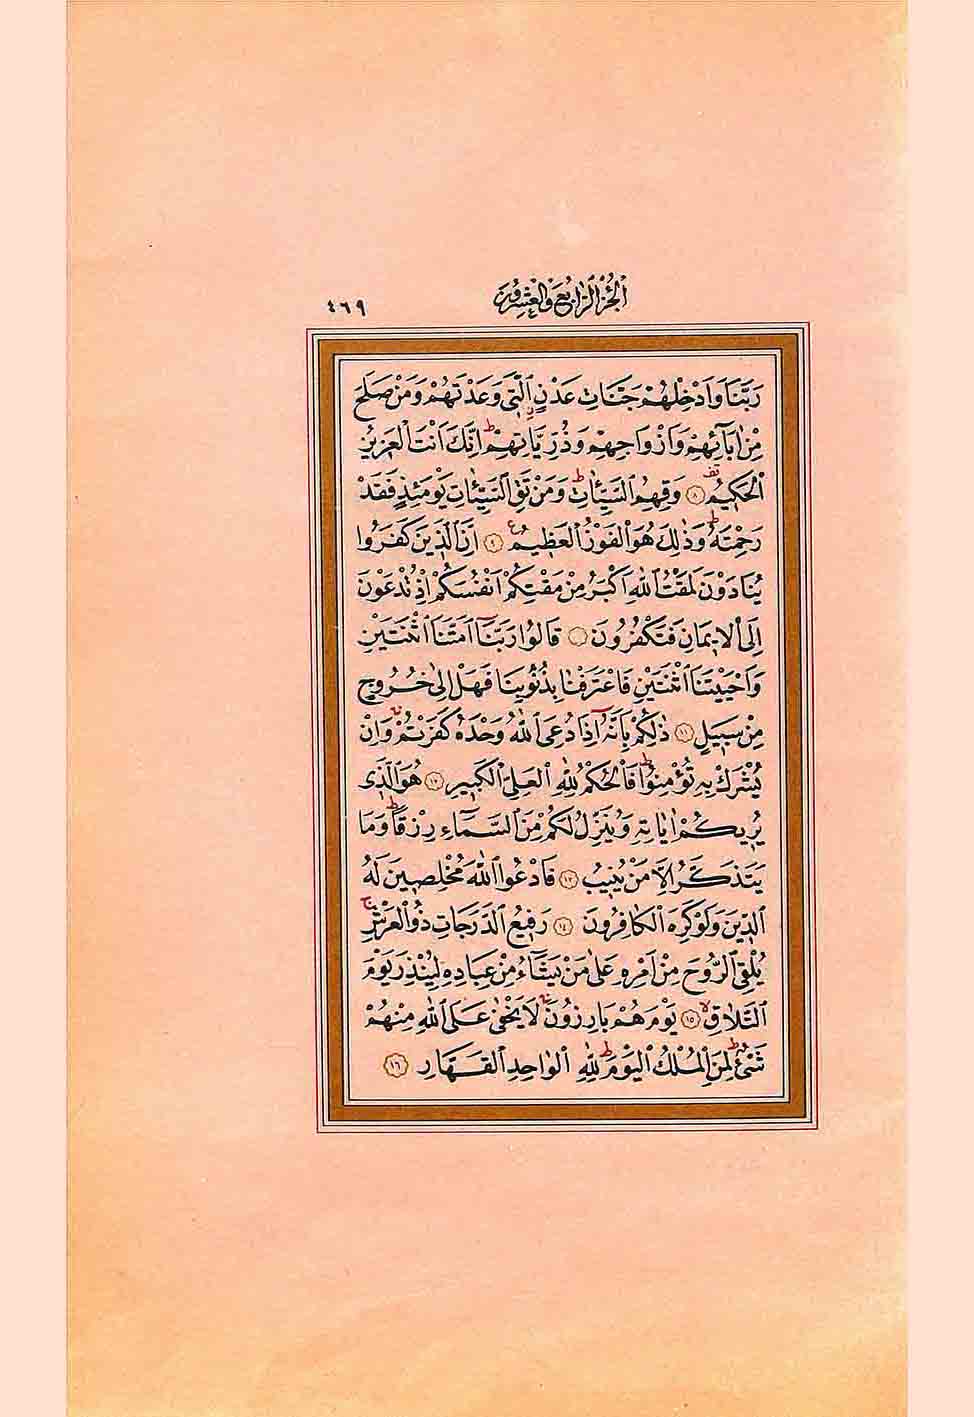 الجزء الرابع والعشرون
٤٦٩
رَبَّنَا وَاَدْخِلْهُمْ جَنَّاتِ عَدْنٍ الَّتِي وَعَدْتَهُمْ وَمَنْ صَلَحَ
مِنْ اٰبَٓائِهِمْ وَاَزْوَاجِهِمْ وَذُرِّيَّاتِهِمْۜ اِنَّكَ اَنْتَ الْعَزِيزُ
الْحَكِيمُ ﴿٨﴾ وَقِهِمُ السَّيِّـَٔاتِۜ وَمَنْ تَقِ السَّيِّـَٔاتِ يَوْمَئِذٍ فَقَدْ
رَحِمْتَهُۜ وَذٰلِكَ هُوَ الْفَوْزُ الْعَظِيمُ ﴿٩﴾ اِنَّ الَّذِينَ كَفَرُوا
يُنَادَوْنَ لَمَقْتُ اللّٰهِ اَكْبَرُ مِنْ مَقْتِكُمْ اَنْفُسَكُمْ اِذْ تُدْعَوْنَ
اِلَى الْا۪يمَانِ فَتَكْفُرُونَ قَالُوا رَبَّنَٓا اَمَتَّنَا اثْنَتَيْنِ
وَاَحْيَيْتَنَا اثْنَتَيْنِ فَاعْتَرَفْنَا بِذُنُوبِنَا فَهَلْ اِلٰى خُرُوجٍ
مِنْ سَبِيلٍ ﴿١١﴾ ذٰلِكُمْ بِاَنَّهُٓ اِذَا دُعِيَ اللّٰهُ وَحْدَهُ كَفَرْتُمْۚ وَاِنْ
يُشْرَكْ بِهِ تُؤْمِنُواۜ فَالْحُكْمُ لِلّٰهِ الْعَلِيِّ الْكَبِيرِ ﴿١٢﴾ هُوَ الَّذِي
يُرِيكُمْ اٰيَاتِهِ وَيُنَزِّلُ لَكُمْ مِنَ السَّمَٓاءِ رِزْقًاۜ وَمَا
يَتَذَكَّرُ اِلَّا مَنْ يُنِيبُ ﴿١٣﴾ فَادْعُوا اللّٰهَ مُخْلِصِينَ لَهُ
الدِّينَ وَلَوْ كَرِهَ الْكَافِرُونَ ﴿١٤﴾ رَفِيعُ الدَّرَجَاتِ ذُو الْعَرْشِۚ
يُلْقِي الرُّوحَ مِنْ اَمْرِهِ عَلٰى مَنْ يَشَٓاءُ مِنْ عِبَادِهِ لِيُنْذِرَ يَوْمَ
التَّلَاقِۙ ﴿١٥﴾ يَوْمَ هُمْ بَارِزُونَۚ لَا يَخْفٰى عَلَى اللّٰهِ مِنْهُمْ
شَيْءٌۜ لِمَنِ الْمُلْكُ الْيَوْمَۜ لِلّٰهِ الْوَاحِدِ الْقَهَّارِ ﴿١٦﴾